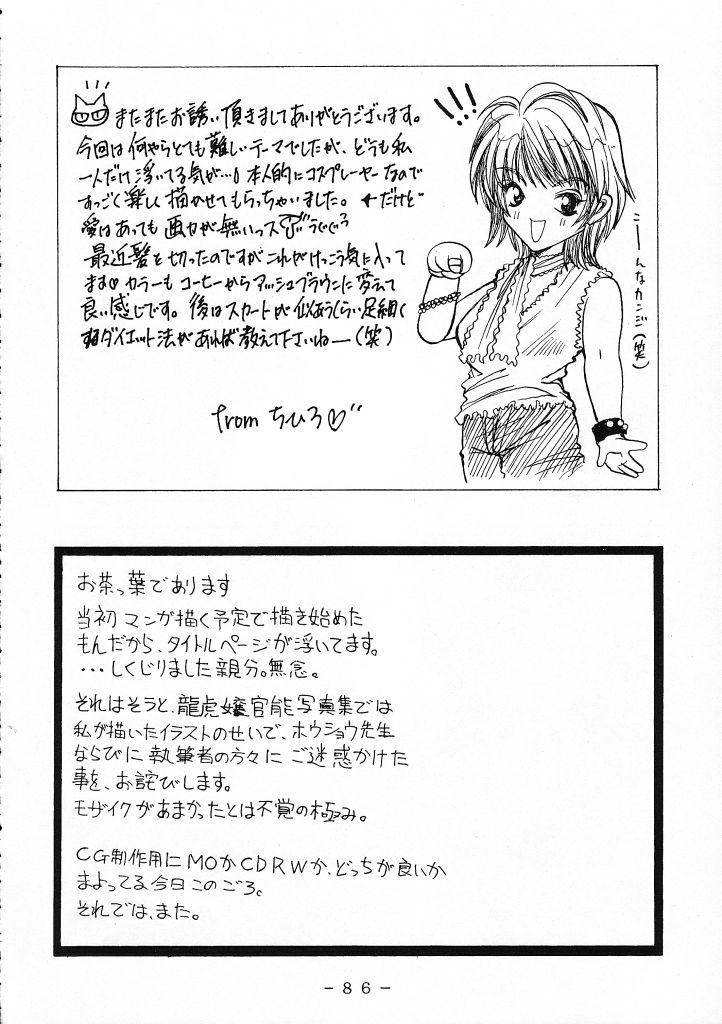 またまたお誘い頂きましてありがとうございます。
今回は何やらとても難しいテーマでしたが、どうも私
一人だけ浮いてる気が…! 本人的にコスプレーヤーなので
すっごく楽しく描かせてもらっちゃいました。←だけど
愛はあっても画力が無いっス
最近髪を切ったのですがこれがけっこう気に入って
ます♡カラーもコーヒーからアッシュブラウンに変えて
良い感じです。後はスカートが似あうくらい足細く
するダイエット法があれば教えて下さいねー(笑)
from ちひろ♡
!!!
こーんなカンジ(笑)
お茶っ葉であります
当初マンが描く予定で描き始めた
もんだから、タイトルページが浮いてます。
・・・しくじりました親分。無念。
それはそうと、龍虎嬢官能写真集では
私が描いたイラストのせいで、ホウショウ先生
ならびに執筆者の方々にご迷惑かけた
事を、お詫びします。
モザイクがあまかったとは不覚の極み。
CG制作用にMOかCDRWか、どっちが良いか
まよってる今日このごろ。
それでは、また。
-86-